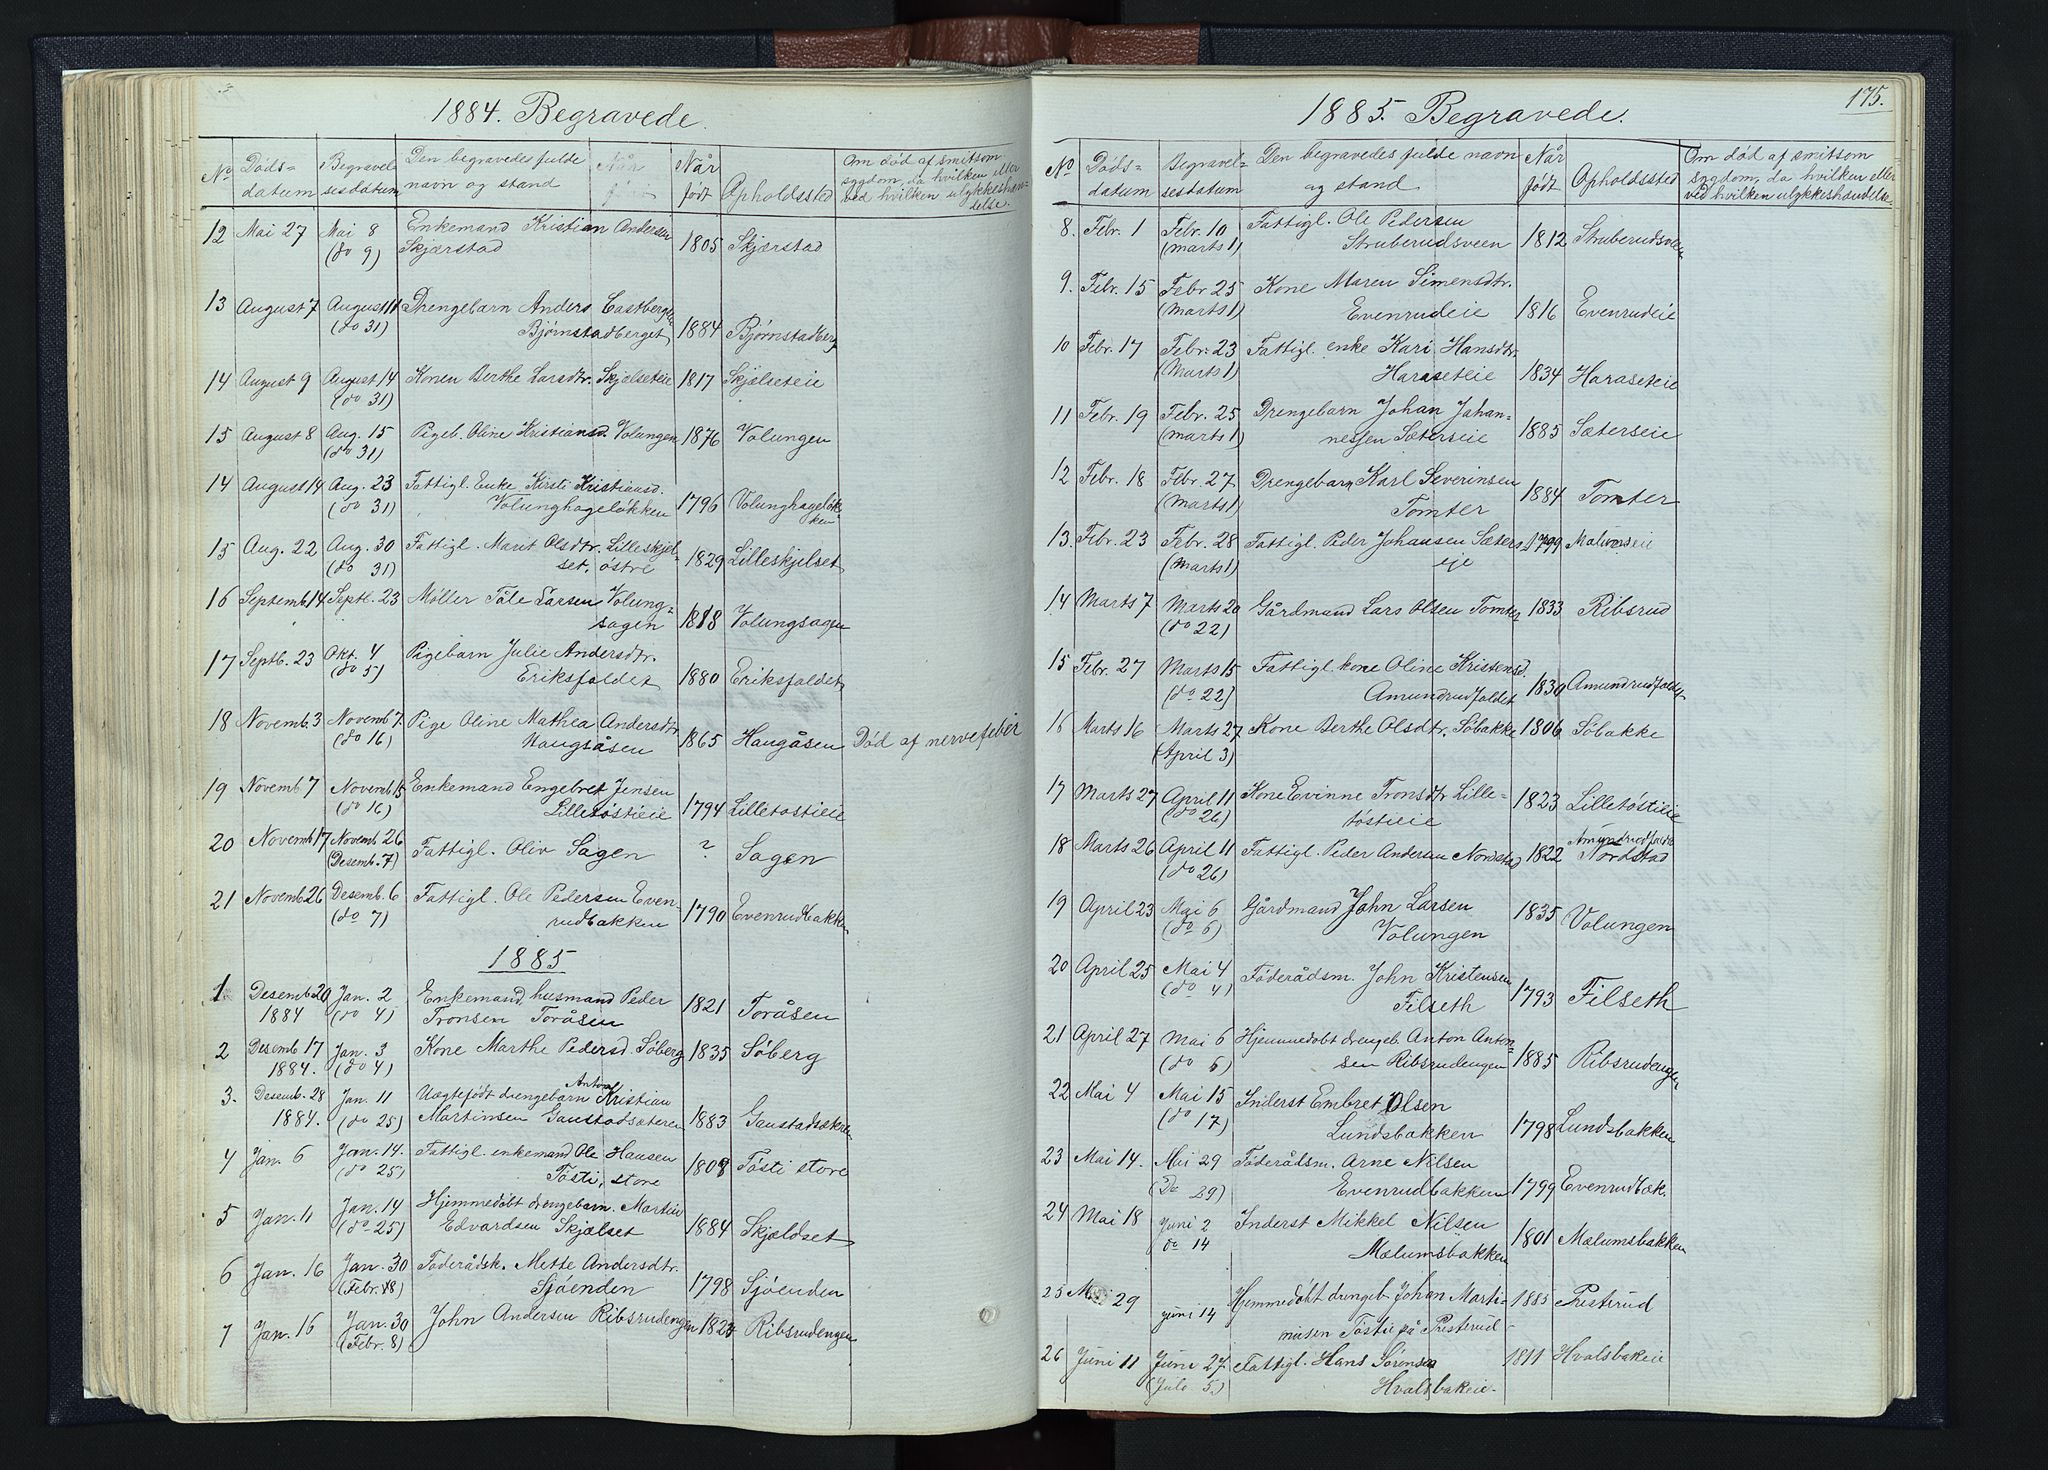 1884. Begravede.
No Døds-datum Begravel-sesdatum Den begravedes fulde navn og stand Når født Når født Opholdssted Om død af smitsom sygdom, da hvilken eller ved hvilken ulykkeshændelse.
12 Mai 27 Mai 8 Enkemand Kristian Andersen
(do 9) Skjærstad 1805 Skjærstad
13 August 7 August 11 Drengebarn Anders Castbergs
(do 31) Bjørnstadberget 1884 Bjørnstadberg
14 August 9 August 14 Konen Berthe Larsdtr. Skjelseteie 1817 Skjelseteie
(do 31)
15 August 8 Aug. 15 Pigeb. Oline Kristiansd. Volungen 1876 Volungen
(do 31)
14 August 14 Aug. 23 Fattigl. Enke Kirsti Kristiansd.
(do 31) Volunghageløkken 1796 Volunghageløk-
ken
15 Aug. 22 Aug. 30 Fattigl. Marit Olsdtr. Lilleskjel-
(do 31) set, østre 1829 Lilleskjelset
16 Septemb. 14 Septl. 23 Møller Tåle Larsen Volung-
sagen 1818 Volungsagen
17 Septb. 23 Okt. 4 Pigebarn Julie Andersdtr.
(do 5) Eriksfaldet 1880 Eriksfaldet
18 Novemb. 3 Novemb. 7 Pige Oline Mathea Andersdtr
(do 16) Haugsåsen 1865 Haugåsen Død af nervefeber
19 Novemb. 7 Novemb. 15 Enkemand Engebret Jensen
(do 16) Lilletøstieie 1794 Lilletøstieie
20 Novemb. 17 Novemb. 26 Fattigl. Oliv Sagen ? Sagen
(Desemb. 7)
21 Novemb. 26 Desemb. 6 Fattigl. Ole Pedersen Even-
(do 7) rudbakken 1790 Evenrudbakken
1885
1 Desemb 20 Jan. 2 Enkemand, husmand Peder
1884 (do 4) Tronsen Toråsen 1821 Toråsen
2 Desemb 17 Jan. 3 Kone Marthe Pedersd. Søberg 1835 Søberg
1884. (do 4)
3. Desemb. 28 Jan. 11 Uægtefødt drengebarn Anton Kristian
1884. (do 25) Martinsen Gaustadsæteren 1883 Gaustadsækre
4 Jan. 6 Jan. 14. Fattigl. enkemand Ole Hansen
(do 25) Tøsti, store 1808 Tøsti store
5 Jan. 11 Jan. 14 Hjemmedøbt drengebarn. Martin
(do 25) Edvardsen Skjælset 1884 Skjældset
6 Jan. 16 Jan. 30 Føderådsk. Mette Andersdtr.
(Febr. 8) Sjøenden 1798 Sjøenden
7 Jan. 16 Jan. 30 John Andersen Ribsrudengen 1823 Ribsrudengen
(Febr. 8)
175.
1885. Begravede.
No Døds-datum Begravel-sesdatum Den begravedes fulde navn og stand Når født Opholdssted Om død af smitsom sygdom, da hvilken eller ved hvilken ulykkeshændelse.
8. Febr. 1 Febr. 10 Fattigl. Ole Pedersen
(marts 1) Struberudsveen 1812 Struberudsveen
9. Febr. 15 Febr 25 Kone Maren Simensdtr.
(marts 1) Evenrudeie 1816 Evenrudeie
10 Febr. 17 Febr. 23 Fattigl. enke Kari Hansdtr.
(Marts 1) Haraseteie 1834 Haraseteie
11 Febr. 19 Febr. 25 Drengebarn Johan Johan-
(marts 1) nessen Sæterseie 1885 Sæterseie
12 Febr. 18 Febr. 27 Drengebarn Karl Severinsen
(Marts 1) Tomter 1884 Tomter
13. Febr. 23 Febr. 28 Fattigl. Peder Johansen Sæters 1799
(Marts 1) eje
14 Marts 7 Marts 20 Gårdmand Lars Olsen Tomter 1833 Ribsrud
(do 22)
15 Febr. 27 Marts 15 Fattigl. kone Oline Kristensd.
(do 22) Amundrudfaldet 1830 Amundrudfaldet
16 Marts 16 Marts 27 Kone Berthe Olsdtr. Søbakke 1806 Søbakke
(April 3)
17 Marts 27 April 11 Kone Evinne Tronsdtr Lille-
(do 26) tøstieie 1823 Lilletøstieie
18 Marts 26 April 11 Fattigl. Peder Andersen Nordstad 1822 Nordstad
(do 26)
19 April 23 Mai 6 Gårdmand John Larsen
(do 6) Volungen 1835 Volungen
20 April 25 Mai 4 Føderådsm. John Kristensen
(do 4) Filseth 1793 Filseth
21 April 27 Mai 6 Hjemmedøbt drengeb. Anton Anton-
(do 6) sen Ribsrudengen 1885 Ribsrudengen
22 Mai 4 Mai 15 Inderst Embret Olsen
(do 17) Lundsbakken 1798 Lundsbakken
23 Mai 14. Mai 29 Føderådsm. Arne Nilsen
(Do 29) Evenrudbakken 1799 Evenrudbak.
24 Mai 18 Juni 2 Inderst Mikkel Nilsen
do 14 Mælumsbakken 1801 Mælumsbakken
25 Mai 29 Juni 14 Hjemmedøbt drengeb. Johan Marti- 1885 Presterud
nusen Tøsti på Presterud
26 Juni 11 Juni 27 Fattigl. Hans Sørensen 1811 Hvalsbakeie
(Juli 5.) Hvalsbakeie.